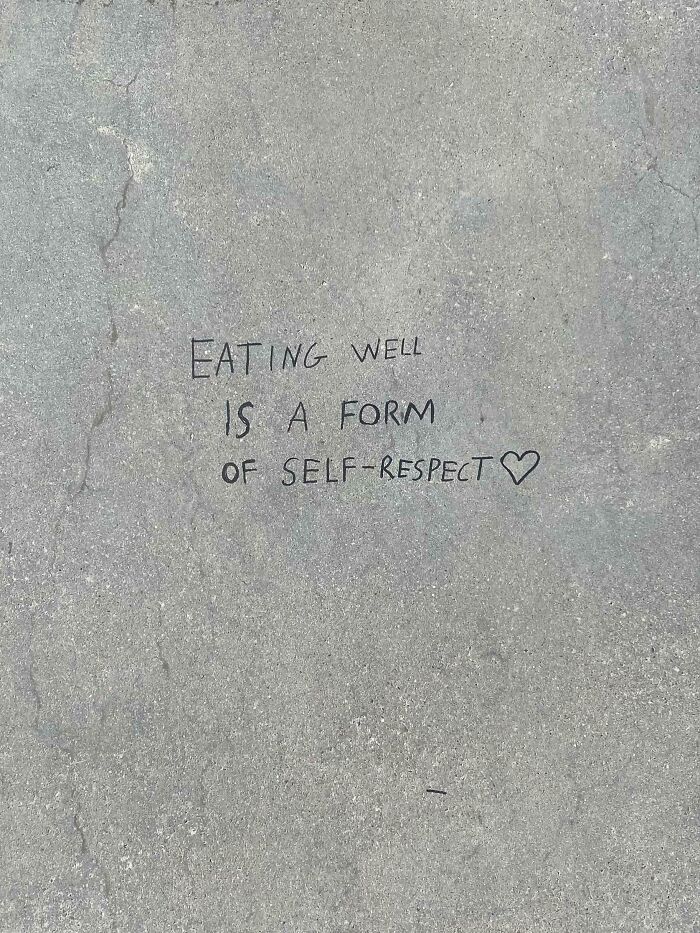 EATING WELL
IS A FORM
OF SELF-RESPECT♡